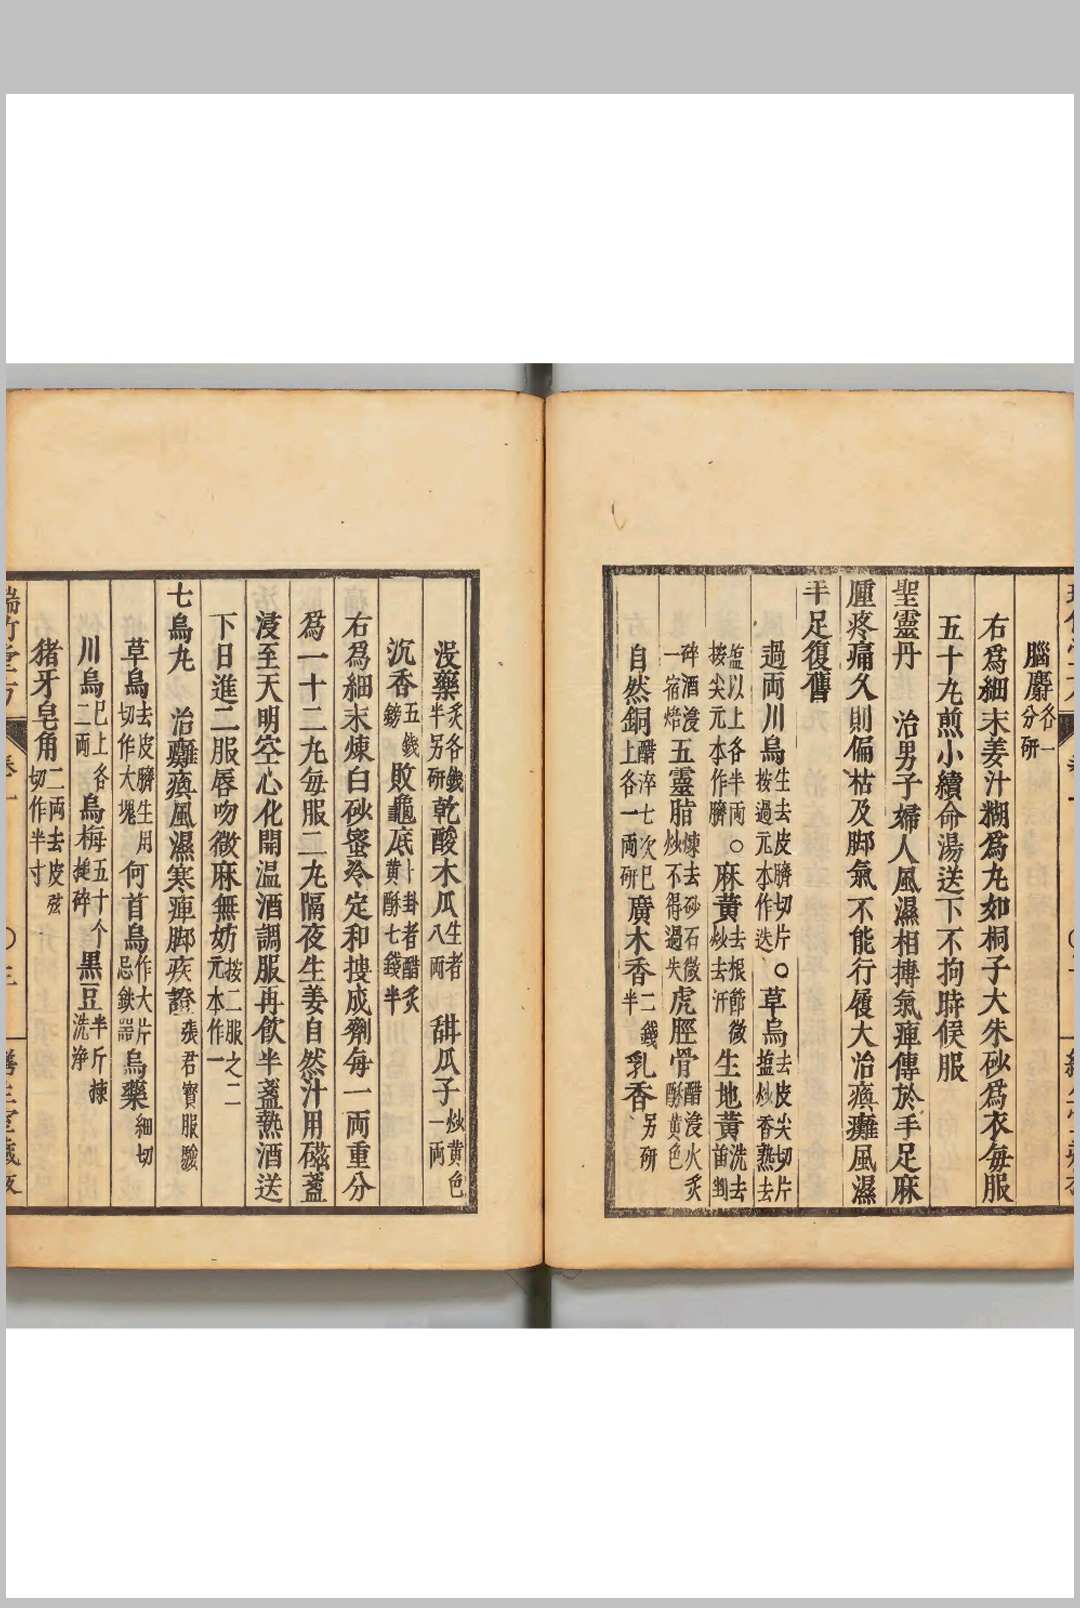 腦麝各一分研
右爲細末姜汁糊爲丸如桐子大朱砂爲衣每服
五十丸煎小續命湯送下不拘時候服
聖靈丹 治男子婦人風濕相摶氣痺傳於手足麻
腫疼痛久則偏枯及脚氣不能行履大治瘓癱風濕
手足復舊
過兩川烏生去皮臍切片按過元本作迭○草烏去皮尖切片塩炒香熟去
塩以上各半兩按尖元本作臍○麻黄去根節微炒去汗生地黄洗去苗剉
碎酒浸一宿焙五靈脂煉去砂石微炒不得過失虎脛骨醋浸火炙酥黄色
自然銅醋淬七次巳上各一兩研廣木香二錢半乳香另研
没藥炙各錢半另研乾酸木瓜生者八兩 甜瓜子炒黄色一兩
沉香五錢鎊敗龜底卜卦者醋炙黄酥七錢半
右爲細末煉白砂蜜冷定和搜成劑每一兩重分
爲一十二丸每服二丸隔夜生姜自然汁用磁盞
浸至天明空心化開温酒調服再飲半盞熱酒送
下日進二服唇吻微麻無妨按二服之二元本作一
七烏丸 治癱瘓風濕寒痺脚疾證張君寳服驗
草烏去皮臍生用切作大塊何首烏作大片忌鉄器烏藥細切
川烏巳上各二兩烏梅每五十个搥碎黒豆半斤揀洗净
猪牙皂角二兩去皮弦切作半寸